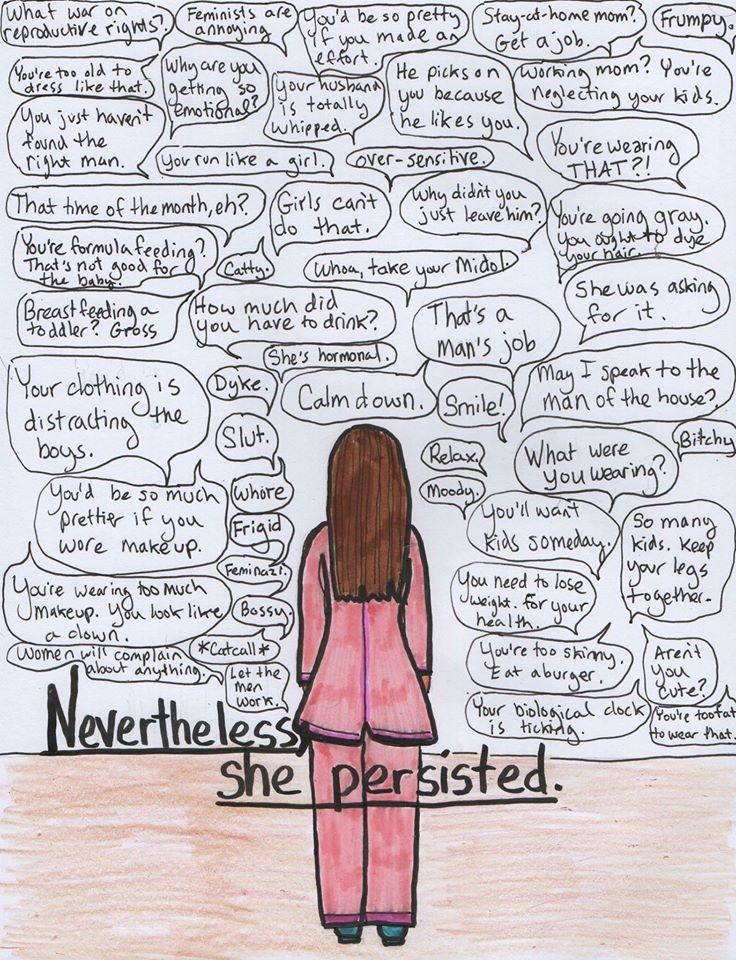 What war on
reproductive rights?
Feminists are
annoying
You'd be so pretty
if you made an
effort.
Stay-at-home mom?
Get a job.
Frumpy.
You're too old to
dress like that.
Why are you
getting so
emotional?
Your husband
is totally
whipped.
He picks on
you because
he likes you.
Working mom? You're
neglecting your kids.
You just haven't
found the
right man.
You run like a girl.
over-sensitive.
You're wearing
THAT?!
That time of the month, eh?
Girls can't
do that.
Why didn't you
just leave him?
You're going gray.
You ought to dye
your hair.
You're formula feeding?
That's not good for
the baby.
Catty.
Whoa, take your Midol.
She was asking
for it.
Breastfeeding a
toddler? Gross
How much did
you have to drink?
That's a
man's job
She's hormonal.
May I speak to the
man of the house?
Your clothing is
distracting the
boys.
Dyke.
Calm down.
Smile!
Slut.
Relax.
What were
you wearing?
Bitchy
You'd be so much
prettier if you
wore makeup.
Whore
Moody.
Frigid
You'll want
kids someday.
So many
kids. Keep
your legs
together.
Feminazi.
You're wearing too much
makeup. You look like
a clown.
Bossy.
You need to lose
weight. for your
health.
Women will complain
about anything.
*Catcall*
You're too skinny.
Eat a burger.
Aren't
you
cute?
Let the
men
work.
Your biological clock
is ticking.
You're too fat
to wear that.
Nevertheless,
she persisted.